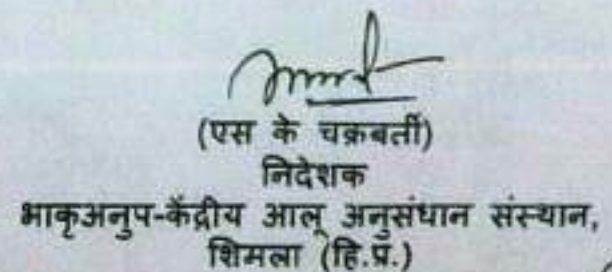 (एस के चक्रबर्ती)
निदेशक
भाकृअनुप-केंद्रीय आलू अनुसंधान संस्थान,
शिमला (हि.प्र.)